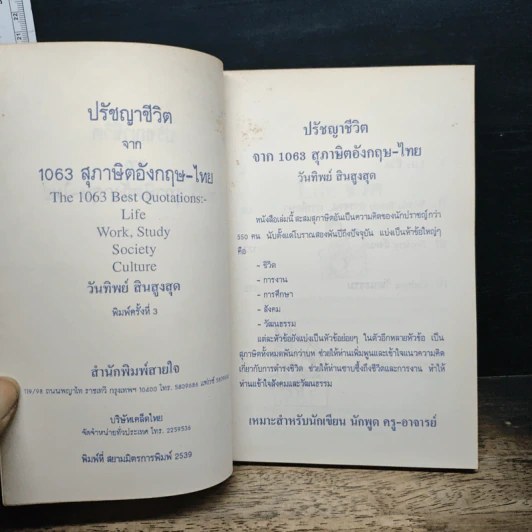 ปรัชญาชีวิต
จาก
1063 สุภาษิตอังกฤษ-ไทย
The 1063 Best Quotations:-
Life
Work, Study
Society
Culture
วันทิพย์ สินสูงสุด
พิมพ์ครั้งที่ 3
สำนักพิมพ์สายใจ
ถนนพญาไท ราชเทวี กรุงเทพฯ 10400 โทร.
บริษัทเคล็ดไทย
จัดจำหน่ายทั่วประเทศ โทร. 2259536
พิมพ์ที่ สยามมิตรการพิมพ์ 2539
ปรัชญาชีวิต
จาก 1063 สุภาษิตอังกฤษ-ไทย
วันทิพย์ สินสูงสุด
หนังสือเล่มนี้ สะสมสุภาษิตอันเป็นความคิดของนักปราชญ์กว่า
350 คน นับตั้งแต่โบราณสองพันปีถึงปัจจุบัน แบ่งเป็นหัวข้อใหญ่ๆ
คือ
- ชีวิต
- การงาน
- การศึกษา
- สังคม
- วัฒนธรรม
แต่ละหัวข้อยังแบ่งเป็นหัวข้อย่อยๆ ในตัวอีกหลายหัวข้อ เป็น
สุภาษิตทั้งหมดพันกว่าบท ช่วยให้ท่านเพิ่มพูนและเข้าใจแนวความคิด
เกี่ยวกับการดำรงชีวิต ช่วยให้ท่านซาบซึ้งถึงชีวิตและการงาน ทำให้
ท่านเข้าใจสังคมและวัฒนธรรม
เหมาะสำหรับนักเขียน นักพูด ครู-อาจารย์